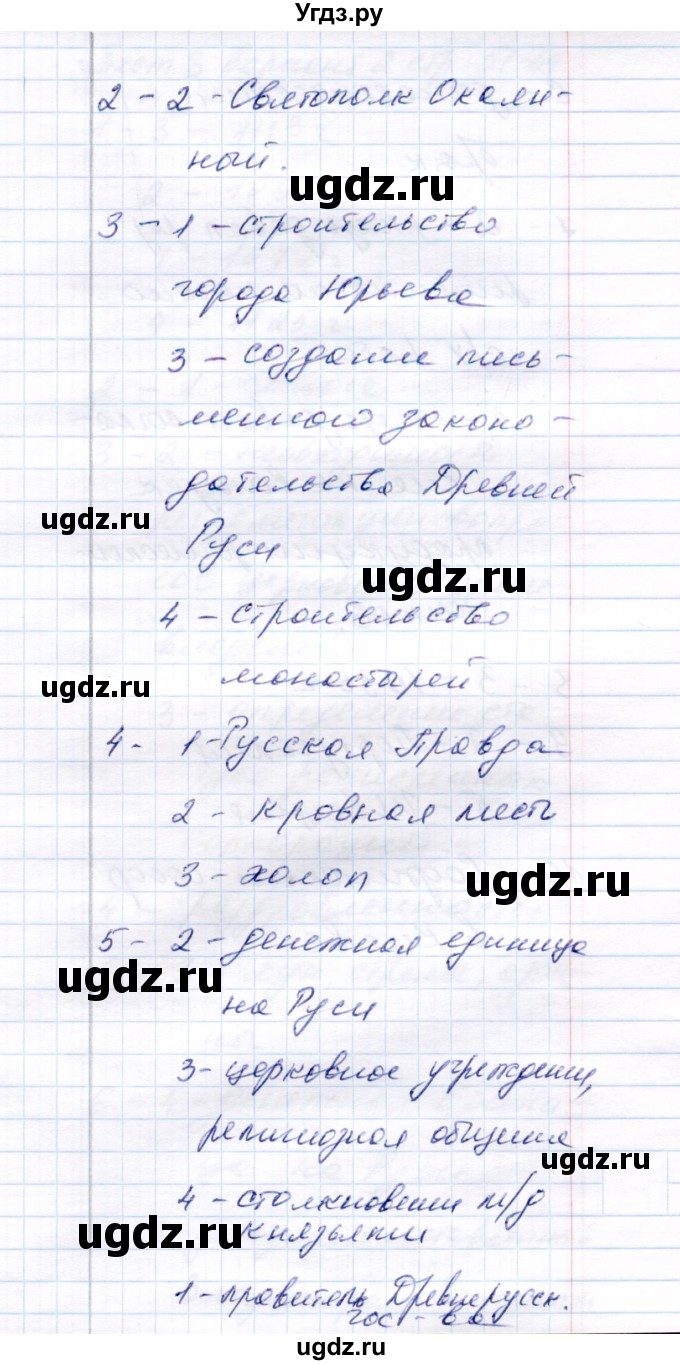 Угдз.ру
2 - 2 - Святополк Окаян-
ный.
ugdz.ru
3 - 1 - строительство
города Юрьева
3 - создание пись-
менного законо-
дательства Древней
ugdz.ru
Руси
ugdz.ru
4 - строительство
ugdz.ru
монастырей
4 - 1 - Русская Правда
2 - кровная месть
3 - холоп
ugdz.ru
5 - 2 - денежная единица
ugdz.ru
на Руси
3 - церковное учреждение,
религиозная община
ugdz.ru
4 - столкновения м/д
ugdz.ru
князьями
1 - правитель Древнерусск.
гос-ва
ugdz.ru